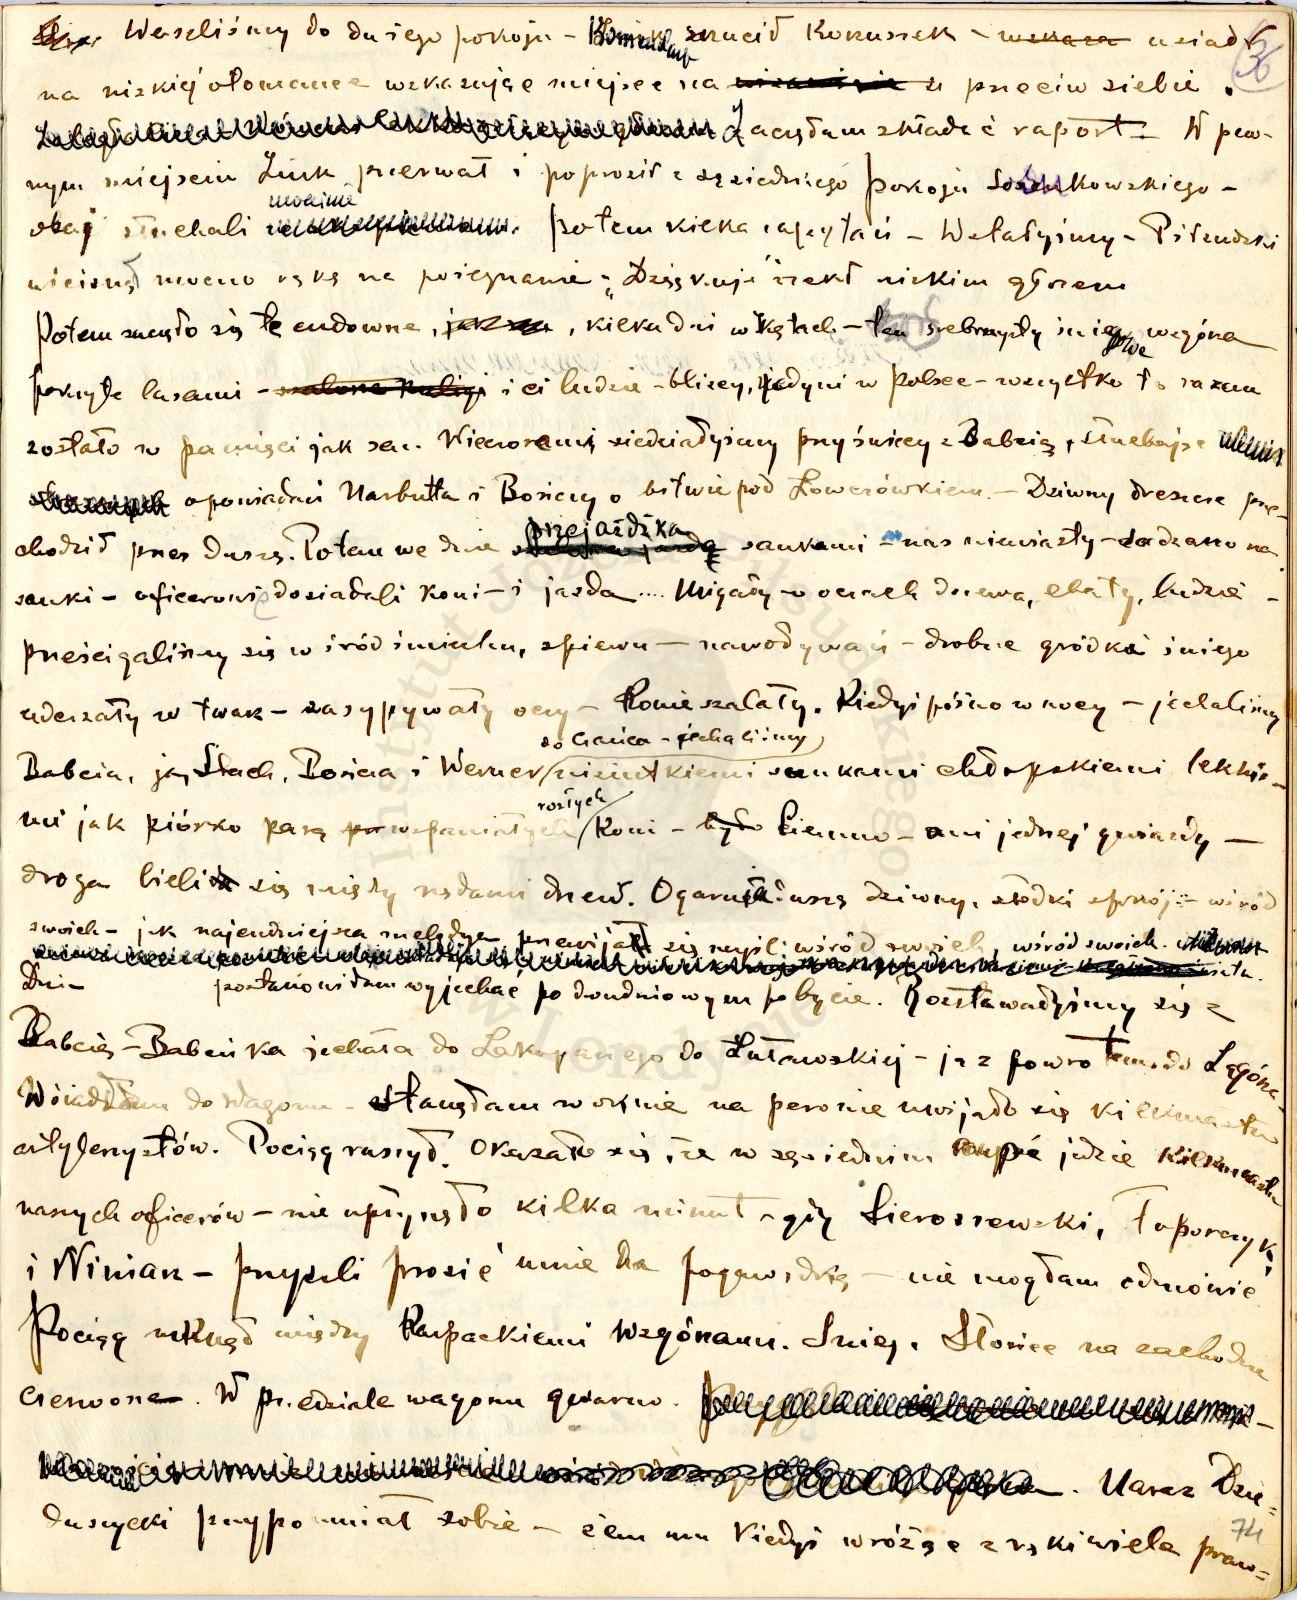 Weszliśmy do dużego pokoju – Komendant zrucił Kożuszek – usiadł 36
na nizkiej otomance wskazując miejsce na przeciw siebie.
Zaczęłam składać raport – W pew-
nym miejscu Ziuk przerwał i poprosił z sąsiedniego pokoju Sosnkowskiego –
mocimie
obaj słuchali potem kilka zapytań – Wstałyśmy – Piłsudski
uścisnął mocno rękę na pożegnanie; „Dziękuję" rzekł nizkim głosem
Potem zaczęło się te cudowne, kilka dni w Kętach – ten srebrzysty śnieg wzgórza
pokryte lasami – i ci ludzie – blizcy, jedyni w Polsce – wszystko to razem
zostało w pamięci jak sen. Wieczorami siedziałyśmy przy świecy z Babcią, słuchając
opowiadań Narbutta i Bożeny o bitwie pod Łowczówkiem. – Dziwny dreszcz prze-
chodził przez duszę. Potem we dnie przejażdżka sankami – nas niewiasty – sadzano na
sanki – oficerowie dosiadali koni – i jazda .... Migały w oczach drzewa, chaty, ludzie –
prześcigaliśmy się wśród śmiechu, śpiewu – nawoływań – drobne gródki śniegu
uderzały w twarz – zasypywały oczy – Konie szalały. Kiedyś późno w nocy – jechaliśmy
do Czańca – jechaliśmy
Babcia, ja, Stach, Bożena i Werner niziutkiemi sankami chłopskiemi lekkie-
rosłych
mi jak piórko parą wspaniałych koni – ciemno – ani jednej gwiazdy –
droga bieliła się między rzędami drzew. Ogarniał duszę dziwny, słodki spokój – wśród
swoich – jak najcudniejsza melodya przewijała się myśl: wśród swoich, wśród swoich.
Dni – postanowiłam wyjechać po dwudniowym pobycie. Rozstawałyśmy się z
Babcią – Babcińka jechała do Zakopanego do Lutosławskiej – ja z powrotem do Zagórza –
Wsiadłam do wagonu – stanęłam w oknie na peronie uwijało się kilkunastu
artylerzystów. Pociąg ruszył. Okazało się, że w sąsiednim coupé jedzie kilkunastu
naszych oficerów – nie upłynęło kilka minut – gdy Sieroszewski, Toporczyk
i Winiarz – przyszli prosić mnie na pogawędkę – nie mogłam odmówić
Pociąg mknął między Karpackiemi Wzgórzami. Śnieg. Słońce na zachodzie
czerwone. W przedziale wagonu gwarno.
Naraz Dzie-
duszycki przypomniał sobie – żem mu kiedyś wróżąc z ręki wiele praw-
74